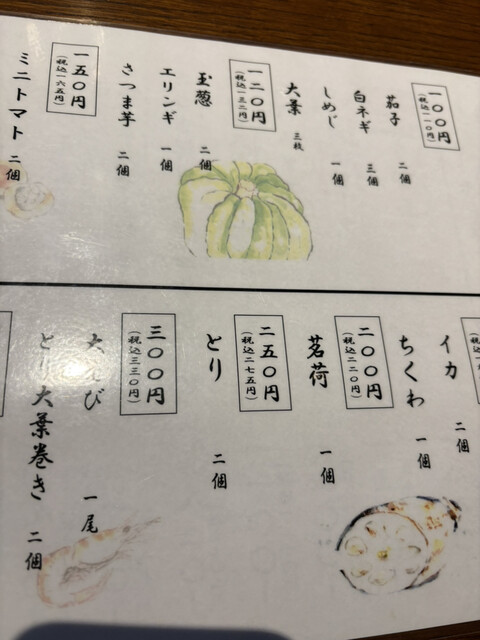 一〇〇円
(税込一一〇円)
茄子 二個
白ネギ 三個
しめじ 一個
大葉 三枚
一二〇円
(税込一三二円)
玉葱 二個
エリンギ 一個
さつま芋 二個
一五〇円
(税込一六五円)
ミニトマト 二個
イカ 二個
ちくわ 一個
二〇〇円
(税込二二〇円)
茗荷 一個
二五〇円
(税込二七五円)
とり 二個
三〇〇円
(税込三三〇円)
大えび 一尾
とり大葉巻き 二個